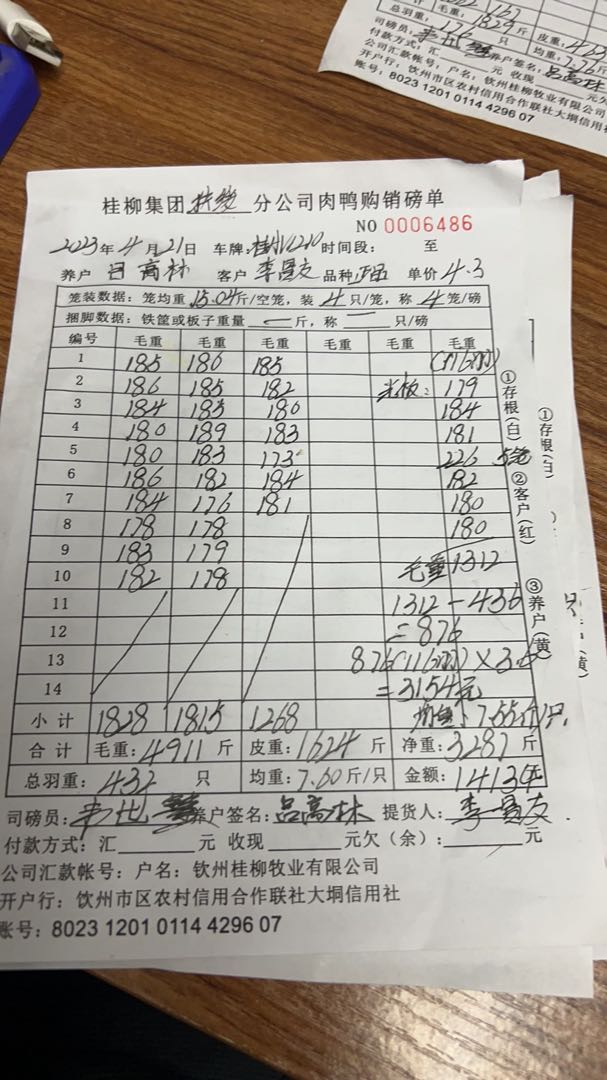 毛重:1829斤 皮重:
总羽重: 176 只 均重:7.76斤/只
司磅员: 养户签名:吕高林
付款方式:汇 元 收现 元欠
公司汇款帐号:户名:钦州桂柳牧业有限公司
开户行:钦州市区农村信用合作联社大垌信用社
账号:8023 1201 0114 4296 07
桂柳集团 扶绥 分公司肉鸭购销磅单
NO 0006486
2023年4月21日 车牌: 时间段: 至
养户 吕高林 客户 李贤友 品种 正品 单价 4.3
笼装数据:笼均重 15.04斤/空笼,装 4 只/笼,称 4 笼/磅
捆脚数据:铁筐或板子重量 — 斤,称 — 只/磅
编号 毛重 毛重 毛重 毛重 毛重 毛重
1 185 186 185 (116羽)
2 186 185 182 光板: 179
3 184 183 180 184
4 180 189 183 181
5 180 183 173 226 5笼
6 186 182 184 182
7 184 176 181 180
8 178 178 180
9 183 179
10 182 178 毛重1312
11 1312-436
12 =876
13 876(116羽)×3.6
14 =3154元
小计 1828 1815 1268 均重:7.55斤/只
合计 毛重:4911斤 皮重:1624斤 净重:3287斤
总羽重: 432 只 均重:7.60斤/只 金额:14134元
司磅员: 养户签名:吕高林 提货人:李贤友
付款方式:汇 元 收现 元欠(余): 元
公司汇款帐号:户名:钦州桂柳牧业有限公司
开户行:钦州市区农村信用合作联社大垌信用社
账号:8023 1201 0114 4296 07
①存根(白) ②客户(红) ③养户(黄)
①存根(白)
(黄)